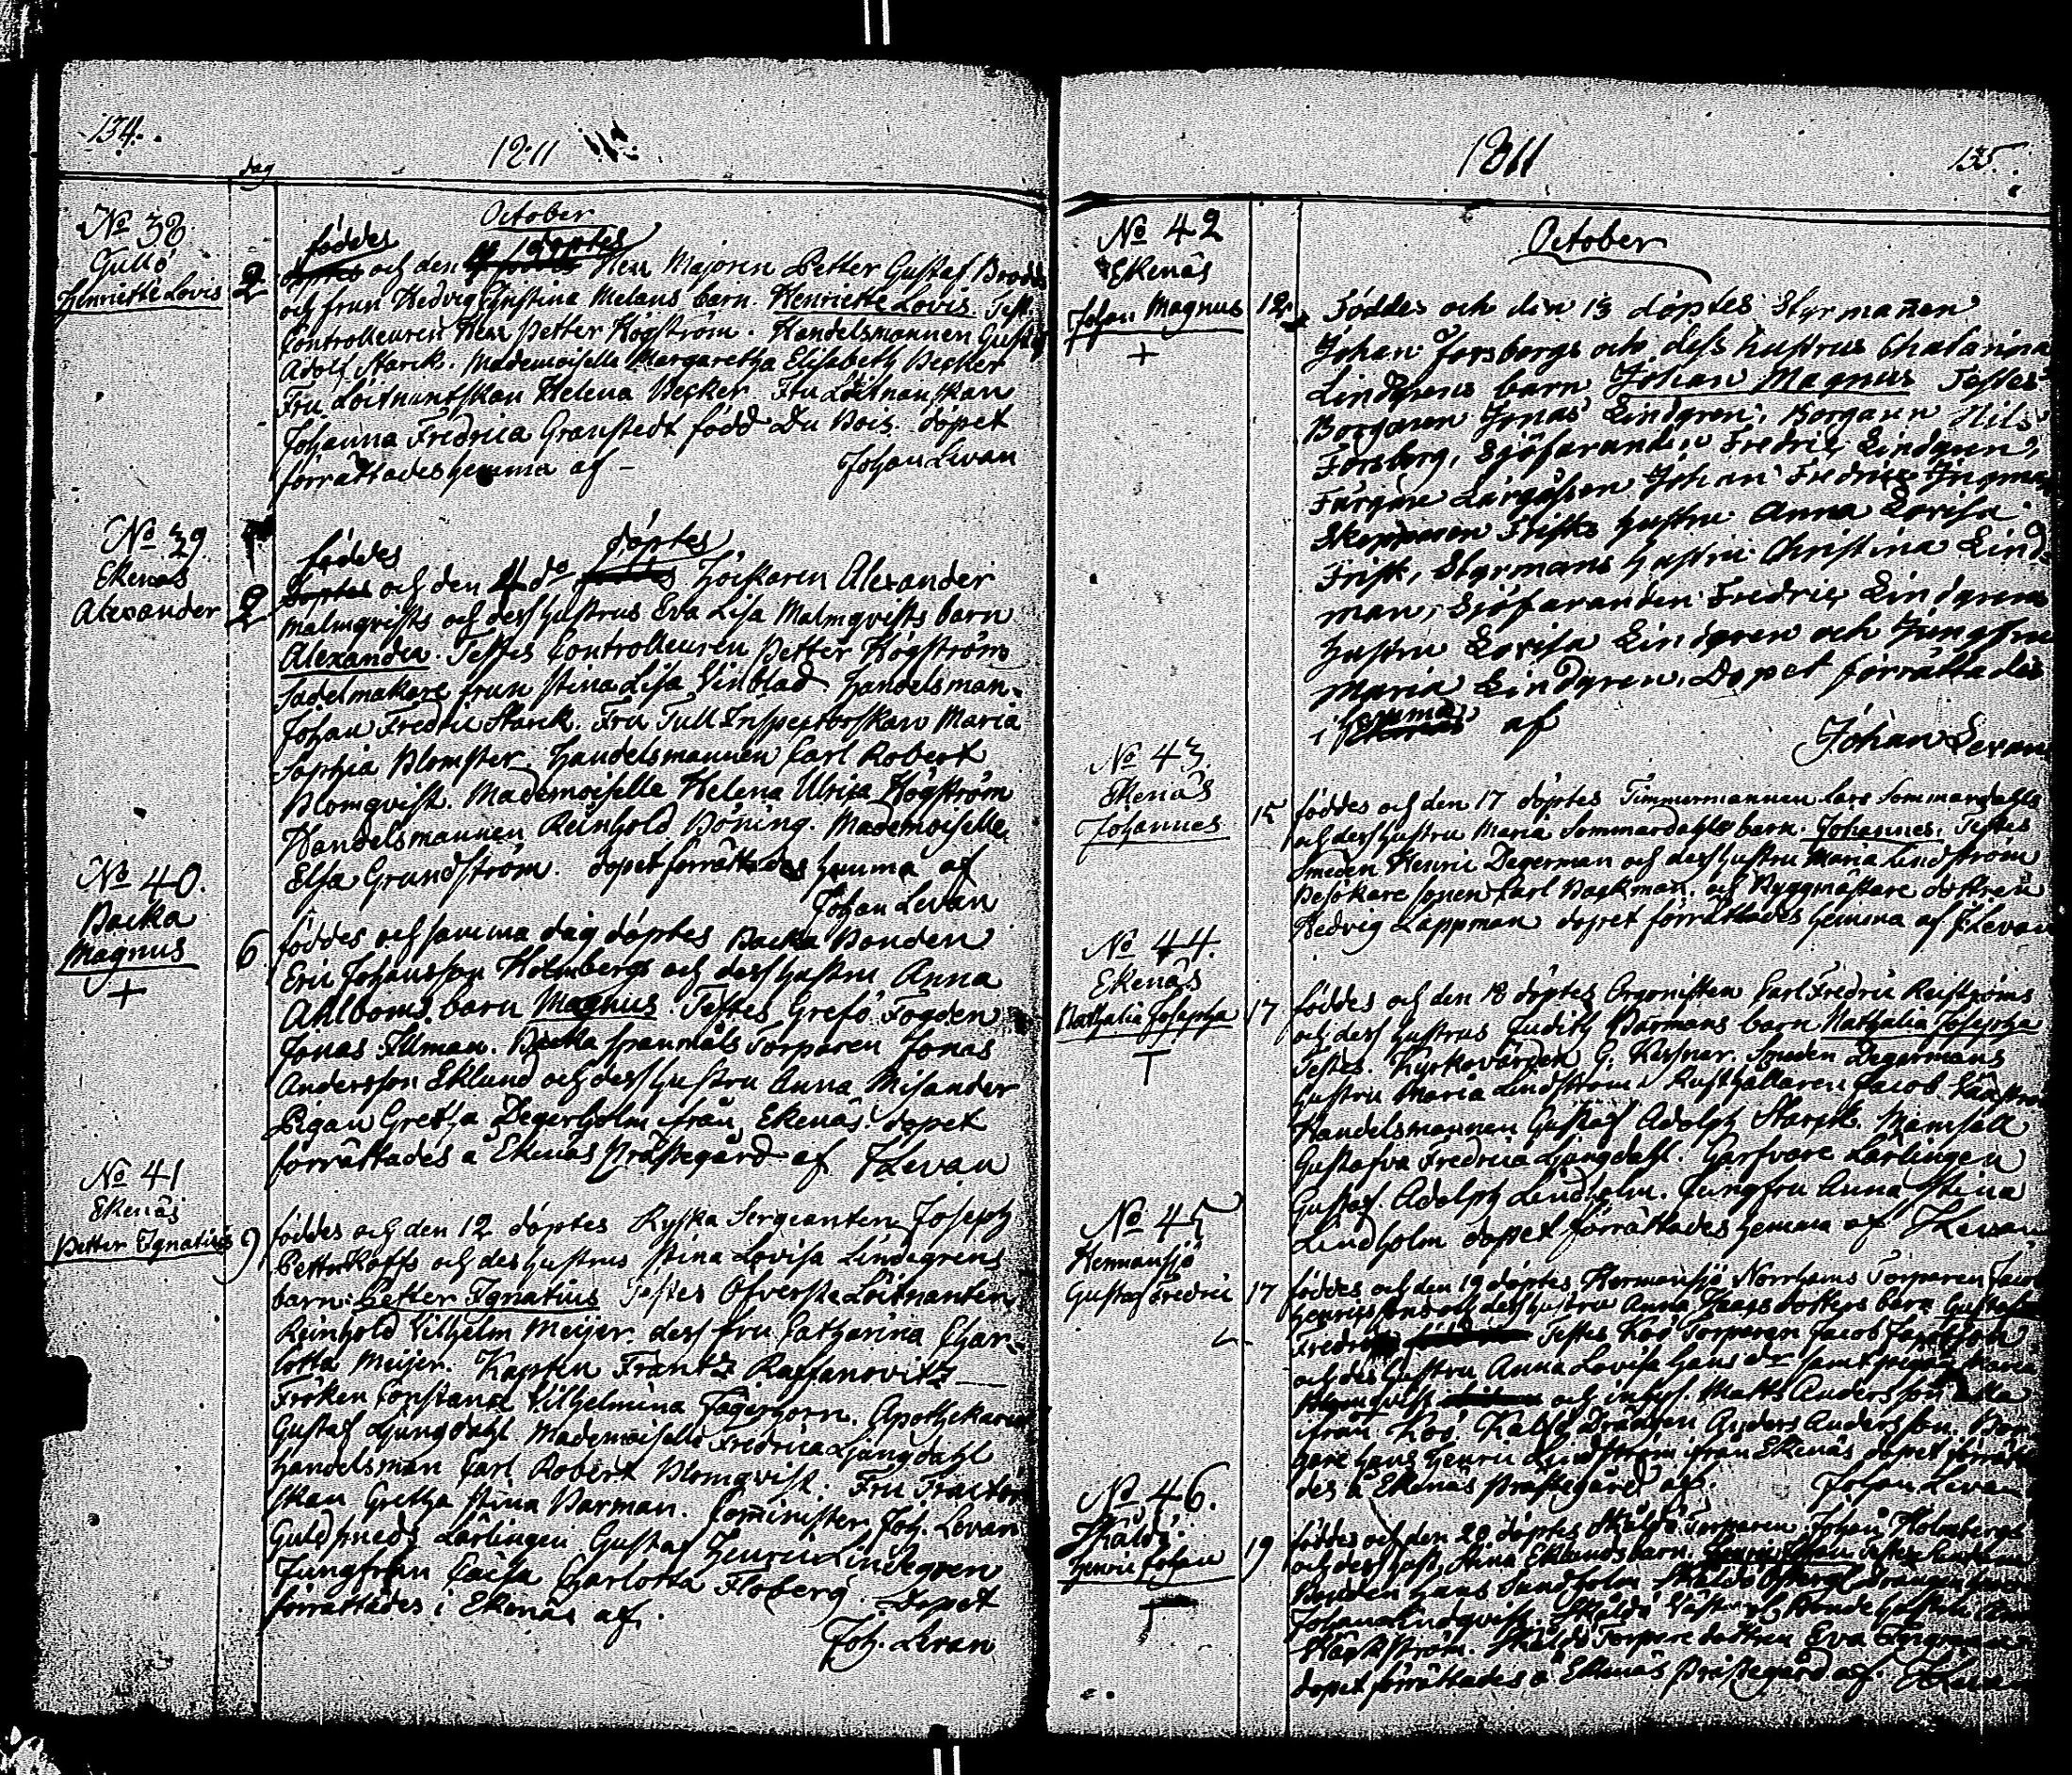 134.
1811
dag
October
No 38
Gullö
Henriette Lovis
2
föddes döptes
och den Herr Majoren Petter Gustaf
och frun Hedvig Christina Melans barn. Henriette Lovis Test.
Controlleuren Herr Petter Högström. Handelsmannen Gustaf
Adolf Starck. Mademoiselle Margaretha Elisabeth Becker
Fru Löitnantskan Helena Becker Fru Löitnanskan
Johanna Fredrica Granstedt född Du Bois. döpet
förrättades hemma af – Johan Levan
No 39
Ekenäs
Alexander
2
föddes döptes
döptes och den 4 do föddes Höckaren Alexander
Malmqvists och dess hustrus Eva Lisa Malmqvists barn
Alexander. Testes Controlleuren Petter Högström
Sadelmakare frun Stina Lisa Vinblad Handelsman
Johan Fredric Starck. Fru Tull Inspectorskan Maria
Sophia Blomster. Handelsmannen Carl Robert
Blomqvist. Mademoiselle Helena Ulrica Högström
Handelsmannen Reinhold Böning. Mademoiselle
Elsa Grundström. döpet förrättades hemma af
Johan Levan
No 40.
Backa
Magnus
+
6
föddes och samma dag döptes Backa Bonden
Eric Johansson Holmbergs och dess hustru Anna
Ahlboms barn Magnus. Testes Grefö Fogden
Jonas Illman. Backa Torparen Jonas
Andersson Eklund och dess hustru Anna Misander
Pigan Gretha Degerholm ifrån Ekenäs. döpet
förrättades å Ekenäs Prästegård af J Levan
No 41
Ekenäs
Petter Ignatius
9
föddes och den 12 döptes Ryska Sergeanten Joseph
och des hustrus Stina Lovisa Lindegrens
barn: Petter Ignatius Testes Öfverste Löitnanten
Reinhold Vilhelm Meijer dess fru Catharina Char-
lotta Meijer. Kapten Frantz Raffanovitz
Fröken Constana Vilhelmina Fägerhorn. Apothekaren
Gustaf Ljungdahl Mademoiselle Fredrica Ljungdahl
Handelsman Carl Robert Blomqvist. Fru Tractör
skan Gretha Stina Barman. Cominister Joh. Levan
Guldsmeds Lärlingen Gustaf Henric Lindegren
Jungfrun Caisa Charlotta Floberg. Döpet
förrättades i Ekenäs af.
Joh. Levan
1811
135.
October
No 42
Ekenäs
Johan Magnus
+
12
Föddes och den 13 döptes Styrmañen
Johan Forsbergs och dess hustrus Chatarina
Lindgrens barn Johan Magnus Testes
Borgaren Jonas Lindgren, Borgaren Nils
Forsberg, Sjöfaranden Fredric Lindgren,
Färgare Lärgossen Johan Fredric
Skepparen Frisks hustru Anna Lovisa
Frisk, Styrmans hustru Christina Lind-
man, Sjöfaranden Fredric Lindgrens
hustru Lovisa Lindgren och Jungfru
Maria Lindgren. Dopet förrättades
hemma af
Johan Levan
No 43.
Ekenäs
Johannes
15
föddes och den 17 döptes Timmermannen Lars Sommardahls
och dess hustru Maria Sommardahls barn. Johannes. Testes
Smeden Henric Degerman och dess hustru Maria Lindström
Besökare sonen Carl Backman. och Ryggmästare dottren
Hedvig Lappman dopet förrättades hemma af J Levan
No 44.
Ekenäs
Nathalia Josepha
T
17
föddes och den 18 döptes Orgonisten Carl Fredric Reiströms
och dess hustrus Judith Barmans barn Nathalia Josepha
Testes. Kyrkovärden G. Smeden Degermans
hustru Maria Lindström. Rusthållaren Jacob
Handelsmannen Gustaf Adolph Starck. Mamsell
Gustafva Fredrica Ljungdahl. Lärlingen
Gustaf Adolph Lindholm. Jungfru Anna Stina
Lindholm dopet förrättades hemma af J Levan
No 45
Hermansjö
Gustaf Fredric
17
föddes och den 19 döptes Hermansjö Torparen
och dess hustru Anna barn Gustaf
Fredric Testes Torparen Jacob
och des hustru Anna Lovisa Hans dr samt pigan Maria
och Matts Andersson
ifrån Anders Andersson.
gare Hans Henric Lindström ifrån Ekenäs dopet förrätta
des å Ekenäs Prästegård af. Johan Levan
No 46.
Skåldö
Henric Johan
T
19
föddes och den 20 döptes Skåldö Torparen Johan Holmbergs
och dess hust. Stina Eklunds barn. Henric Johan Testes
Bonden Hans Sundholm Skåldö
Johanna Lindqvist. Skåldö
Skåldö Torpare dottren Eva
dopet förrättades å Ekenäs Prästegård af. J Levan